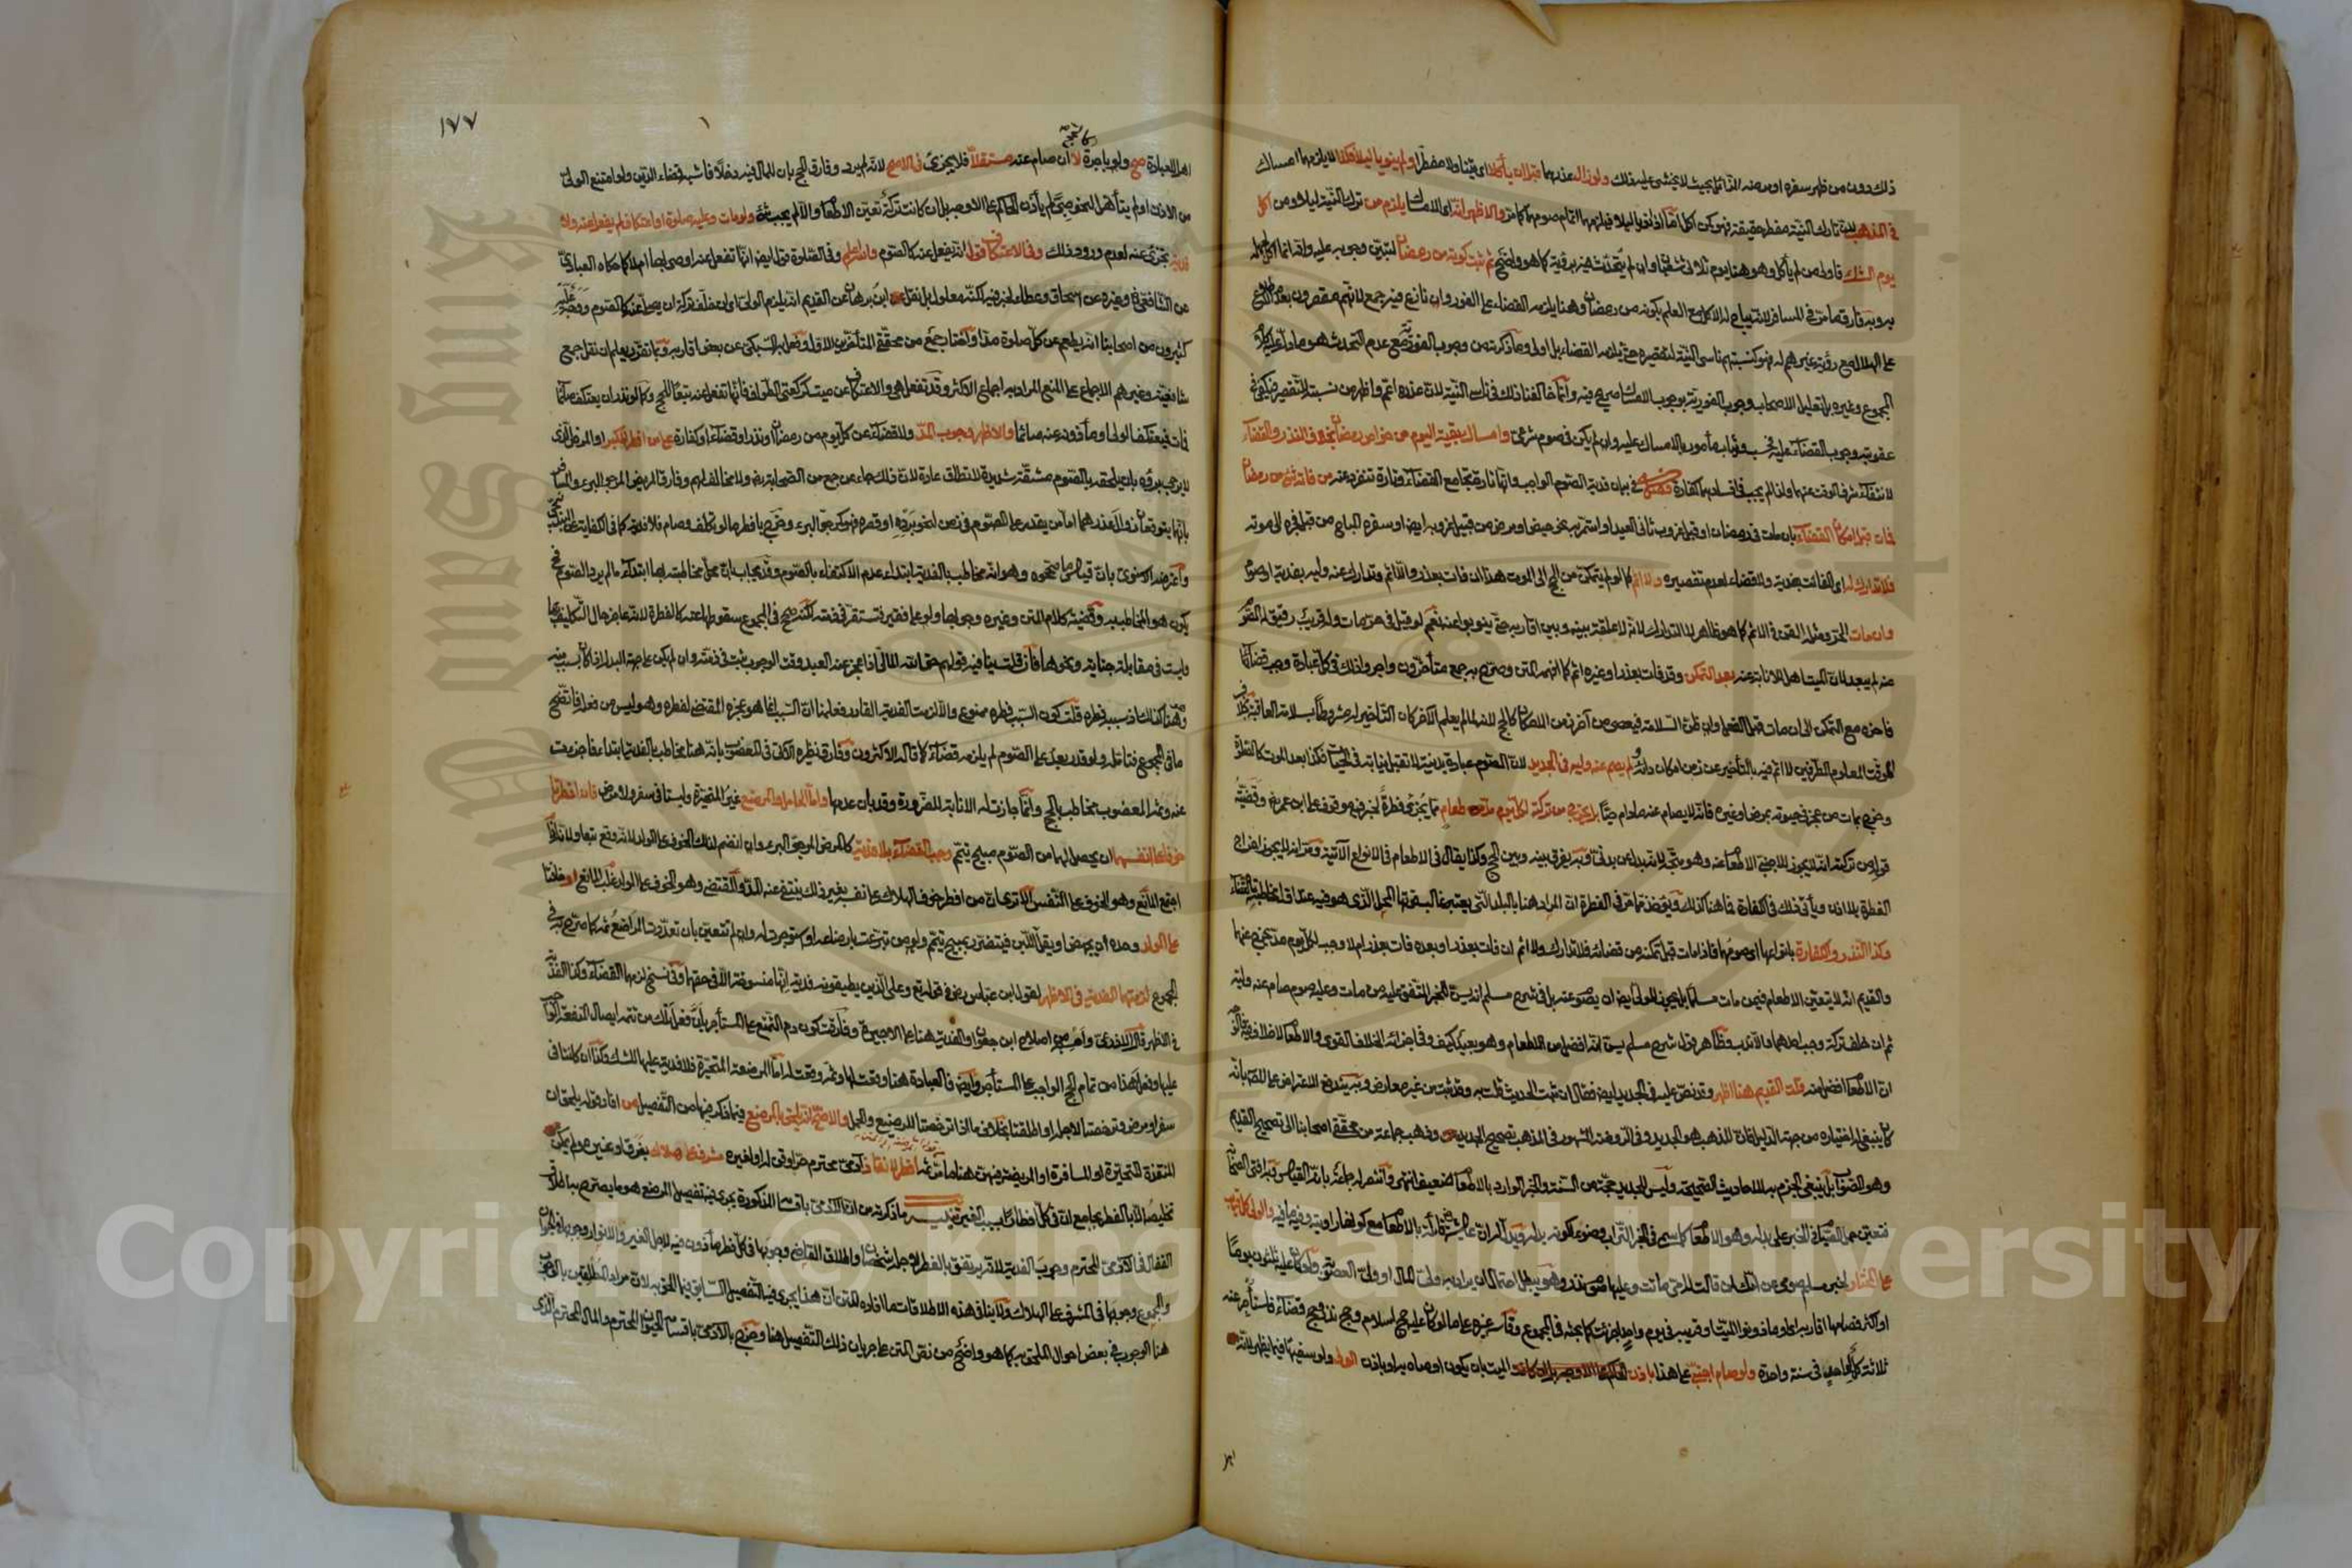 ذلك دون من ظهر سفره او مرضه الزائل بحيث لا يخشى عليه ذلك ولو زال عذرهما قبل ان يأكلا اى يتناولا مفطرا ولم ينويا ليلا فكذا لا يلزمهما امساك
في المذهب لان تارك النية مفطر حقيقة فهو كمن اكل اما اذا نويا ليلا فيلزمهما اتمام صومهما كما مر والاظهر انه اى الامساك يلزم من ترك النية ليلا ومن اكل
يوم الشك فاولى من لم يأكل وهو هنا يوم ثلاثى شعبان وان لم يتحدث فيه برؤية كما هو واضح ثم ثبت كونه من رمضان لتبين وجوبه عليه وانه انما اكل لجهله
به وبه فارق ما مر في المسافر لانه يباح له الاكل مع العلم بكونه من رمضان وهنا يلزمه القضاء على الفور وان نازع فيه جمع لانهم مقصرون بعدم الاطلاع
على الهلال مع رؤية غيرهم له فهو كنسبتهم ناسى النية لتقصيره حتى يلزمه القضاء بل اولى وما ذكرته من وجوب الفورية مع عدم التحدث هو ما دل عليه كلام
المجموع وغيره بل تعليل الاصحاب وجوب الفورية بوجوب الامساك صريح فيه وانما خالفنا ذلك في ناسى النية لان عذره اعم واظهر من نسبته للتقصير فكفى في
عقوبته وجوب القضاء عليه فحسب ويثاب مأمور بالامساك عليه وان لم يكن في صوم شرعى وامساك بقية اليوم من خواص رمضان بخلاف النذر والقضاء
لانتفاء شرف الوقت عنهما ولذا لم يجب في افسادهما كفارة فصل في بيان فدية الصوم الواجب وانها تارة تجامع القضاء وتارة تنفرد عنه من فاته شئ من رمضان
فمات قبل امكان القضاء بان مات في رمضان او قبل غروب ثانى العيد او استمر به نحو حيض او مرض من قبيل غروبه ايضا او سفره المباح من قبل فجره الى موته
فلا تدارك له اى الفائت بفدية ولا قضاء لعدم تقصيره ولا اثم كما لو لم يتمكن من الحج الى الموت هذا ان فات بعذر والا اثم وتدارك عنه وليه بفدية او صوم
وان مات
عنه لم يبعد لان الميت اهل للانابة عنه بعد التمكن وقد فات بعذر او غيره اثم كما افهمه المتن وصرح به جمع متأخرون واجروا ذلك في كل عبادة وجب قضاؤها
فاخره مع التمكن الى ان مات قبل الفعل وان ظن السلامة فيعصى من آخر زمن الامكان كالحج لانه لما لم يعلم الآخر كان التأخير له مشروطا بسلامة العاقبة بخلاف
المؤقت المعلوم الطرفين لا اثم فيه بالتأخير عن زمن امكان ادائه لم يصم عنه وليه في الجديد لان الصوم عبادة بدنية لا تقبل نيابة في الحياة فكذا بعد الموت كالصلاة
وخرج بمات من عجز في حيوته بمرض او غيره فانه لا يصام عنه ما دام حيا بل يخرج من تركته لكل يوم مد طعام مما يجزئ فطرة لخبر فيه موقوف على ابن عمر رض وقضية
قوله من تركته انه لا يجوز للاجنبى الاطعام عنه وهو متجه لانه بدل عن بدنى وبه يفرق بينه وبين الحج وكذا يقال في الاطعام في الانواع الآتية ومر انه لا يجوز اخراج
الفطرة بلا اذن ويأتى ذلك في الكفارة فما هنا كذلك ويؤخذ مما مر في الفطرة ان المراد هنا بالبلد التى يعتبر غالب قوتها المحل الذى هو فيه عند اول مخاطبته بالقضاء
وكذا النذر والكفارة بانواعها اى صومها فاذا مات قبل تمكنه من قضائه فلا تدارك ولا اثم ان فات بعذر او بعده فات بعذر ام لا وجب لكل يوم مد يخرج عنها
والقديم انه لا يتعين الاطعام فيمن مات مسلما بل يجوز للولى ايضا ان يصوم عنه بل في شرح مسلم انه يسن للخبر المتفق عليه من مات وعليه صوم صام عنه وليه
ثم ان خلف تركة وجب احدهما والا ندب وظاهر قول شرح مسلم يسن انه افضل من الاطعام وهو بعيد كيف وفي اجزائه الخلاف القوى والاطعام لا خلاف فيه فالوجه
ان الاطعام افضل منه قلت القديم هنا اظهر وقد نص عليه في الجديد ايضا فقال ان ثبت الحديث قلت به وقد ثبت من غير معارض وبه يندفع الاعتراض على المص بانه
كان ينبغى له اختياره من جهة الدليل فان المذهب هو الجديد وفي الروضة المشهور في المذهب تصحيح الجديد وذهب جماعة من محققى اصحابنا الى تصحيح القديم
وهو الصواب بل ينبغى الجزم به للاحاديث الصحيحة وليس للجديد حجة من السنة والخبر الوارد بالاطعام ضعيف انتهى وانتصر له جماعة بانه القياس وبه افتى اصحابنا
فتعين حمل الصيام في الخبر على بدله وهو الاطعام كما سمى في الخبر التراب وضوء لكونه بدله ويدل له ان عائشة رض قائلة بالاطعام مع كونها راوية وفيه ما فيه والولى كل قريب
على المختار لخبر مسلم صومى عن امك لمن قالت له امى ماتت وعليها صوم نذر وهو يبطل احتمال ان يراد به ولى المال او ولى العصوبة ولو كان عليه ثلثون يوما
او اكثر فصامها اقاربه او مأذونوا الميت او قريبه في يوم واحد اجزأت كما بحثه في المجموع وقاسه غيره على ما لو كان عليه حج اسلام وحج نذر وحج قضاء فاستأجر عنه
ثلاثة كل لواحد في سنة واحدة ولو صام اجنبى على هذا باذن الميت بان يكون اوصاه به او باذن الولى ولو سفيها فيما يظهر لانه
١٧٧
كالحج صح
اهل للعبادة صح ولو باجرة لا ان صام عنه مستقلا فلا يجزئ في الاصح لانه لم يرد وفارق الحج بان للمال فيه دخلا فاشبه قضاء الدين ولو امتنع الولى
من الاذن او لم يتأهل لنحو صبى لم يأذن الحاكم على الاوجه بل ان كانت تركة تعين الاطعام والا لم يجب شئ ولو مات وعليه صلوة او اعتكاف لم يفعل عنه ولا فدية
تجزئ عنه لعدم ورود ذلك وفي الاعتكاف قول انه يفعل عنه كالصوم والله اعلم وفي الصلوة قول ايضا انها تفعل عنه اوصى بها ام لا كما حكاه العبادى
عن الشافعى وغيره عن اسحاق وعطاء لخبر فيه لكنه معلول بل نقل ابن برهان عن القديم انه يلزم الولى اى ان خلف تركة ان يصلى عنه كالصوم ووجه عليه
كثيرون من اصحابنا انه يطعم عن كل صلوة مدا واختار جمع من محققى المتأخرين الاول وفعل به السبكى عن بعض اقاربه وبما تقرر يعلم ان نقل جمع
شافعية وغيرهم الاجماع على المنع المراد به اجماع الاكثر وقد تفعل هى والاعتكاف عن ميت كركعتى الطواف فانها تفعل عنه تبعا للحج وكما لو نذر ان يعتكف صائما
فمات فيعتكف الولى او مأذونه عنه صائما والاظهر وجوب المد ولا قضاء عن كل يوم من رمضان او نذر او قضاء او كفارة على من افطر لكبر او المرض الذى
لا يرجى برؤه بان يلحقه بالصوم مشقة شديدة لا تطاق عادة لان ذلك جاء عن جمع من الصحابة رض ولا مخالف لهم وفارق المريض المرجو البرء والمسافر
بانهما يتوقعان زوال عذرهما اما من يقدر على الصوم في زمن لنحو برده او قصره فهو كمرجو البرء وخرج بافطر ما لو تكلف وصام فلا فدية كما في الكفاية
واعترضه الاسنوى بان قياس ما صححوه وهو انه مخاطب بالفدية ابتداء عدم الاكتفاء بالصوم وقد يجاب بان محل مخاطبته بها ابتداء ما لم يرد الصوم فح
يكون هو المخاطب به وقضية كلام المتن وغيره وجوبها ولو على فقير فتستقر في ذمته لكنه صحح في المجموع سقوطها عنه كالفطرة لانه عاجز حال التكليف بها
وليست في مقابلة جناية ونحوها فان قلت ينافيه قولهم حق الله المالى اذا عجز عنه العبد وقت الوجوب ثبت في ذمته وان لم يكن على جهة البدل اذا كان بسبب منه
وهنا كذلك اذ سببه فطره قلت كون السبب فطره ممنوع والا لزمت الفدية القادر فعلمنا ان السبب انما هو عجزه المقتضى لفطره وهو ليس من فعله فاتضح
ما في المجموع فتأمله ولو قدر بعد على الصوم لم يلزمه قضاء كما قاله الاكثرون وفارق نظيره الآتى في المعضوب بانه هنا مخاطب بالفدية ابتداء فاجزأت
عنه وثم المعضوب مخاطب بالحج وانما جازت له الانابة للضرورة وقد بان عدمها واما الحامل والمرضع غير المتحيرة وليستا في سفر ولا مرض فان افطرتا
خوفا على نفسهما ان يحصل لهما من الصوم مبيح تيمم وجب القضاء بلا فدية كالمريض المرجو البرء وان انضم لذلك الخوف على الولد لانه وقع تبعا
المانع وهو الخوف على النفس الا ترى ان من افطر خوف الهلاك على نفسه بغير ذلك ينتفى عنه المد والمقتضى وهو الخوف على الولد غلب المانع او خافتا
على الولد وحده ان يجهض او يقل اللبن فيتضرر بمبيح تيمم ولو من تبرعت بارضاعه او استؤجرت له وان لم تتعين بان تعددت المراضع كما صرح به في
المجموع لزمتهما الفدية في الاظهر لقول ابن عباس رض في قوله تع وعلى الذين يطيقونه فدية انها منسوخة الا في حقهما وفي نسخ لزمهما القضاء وكذا الفدية
في الاظهر
عليها وفعل هذا من تمام الحج الواجب على المستأجر وايضا فالعبادة هنا وقعت لها وثم وقعت له اما المرضعة المتحيرة فلا فدية عليها للشك وكذا ان كانتا في
سفر او مرض وترخصتا لاجله او اطلقتا بخلاف ما اذا ترخصتا للرضيع والحمل والاصح انه يلحق بالمرضع فيما ذكر فيها من التفصيل من
المنقذة المتحيرة او المسافرة او المريضة فيهن هنا ما مر ثم افطر لانقاذ آدمى محترم حر او قن له او لغيره مشرف على هلاك بغرق او غيره ولم يمكن
تخليصه الا بالفطر بجامع ان في كل افطارا بسبب الغير تنبيه ما ذكرته من ان الآدمى باقسامه المذكورة يجرى فيه تفصيل المرضع هو ما يصرح به اطلاق
القفال في الآدمى المحترم وجوب الفدية لانه يرتفق بالفطر لاجله شخصان واطلاق القاضى وجوبها في كل فطر مأذون فيه لاجل الغير والانوار وجوبها في الحيوان
والمجموع وجوبها في المشرف على الهلاك ولا ينافي هذه الاطلاقات ما افاده المتن ان هذا يجرى فيه التفصيل السابق فيما الحق به لان مراد المطلقين بالوجوب
هنا الوجوب في بعض احوال الملحق به كما هو واضح من نص المتن على جريان ذلك التفصيل هنا وخرج بالآدمى باقسامه الحيوان المحترم والمال المحترم الذى
Copyright © King Saud University